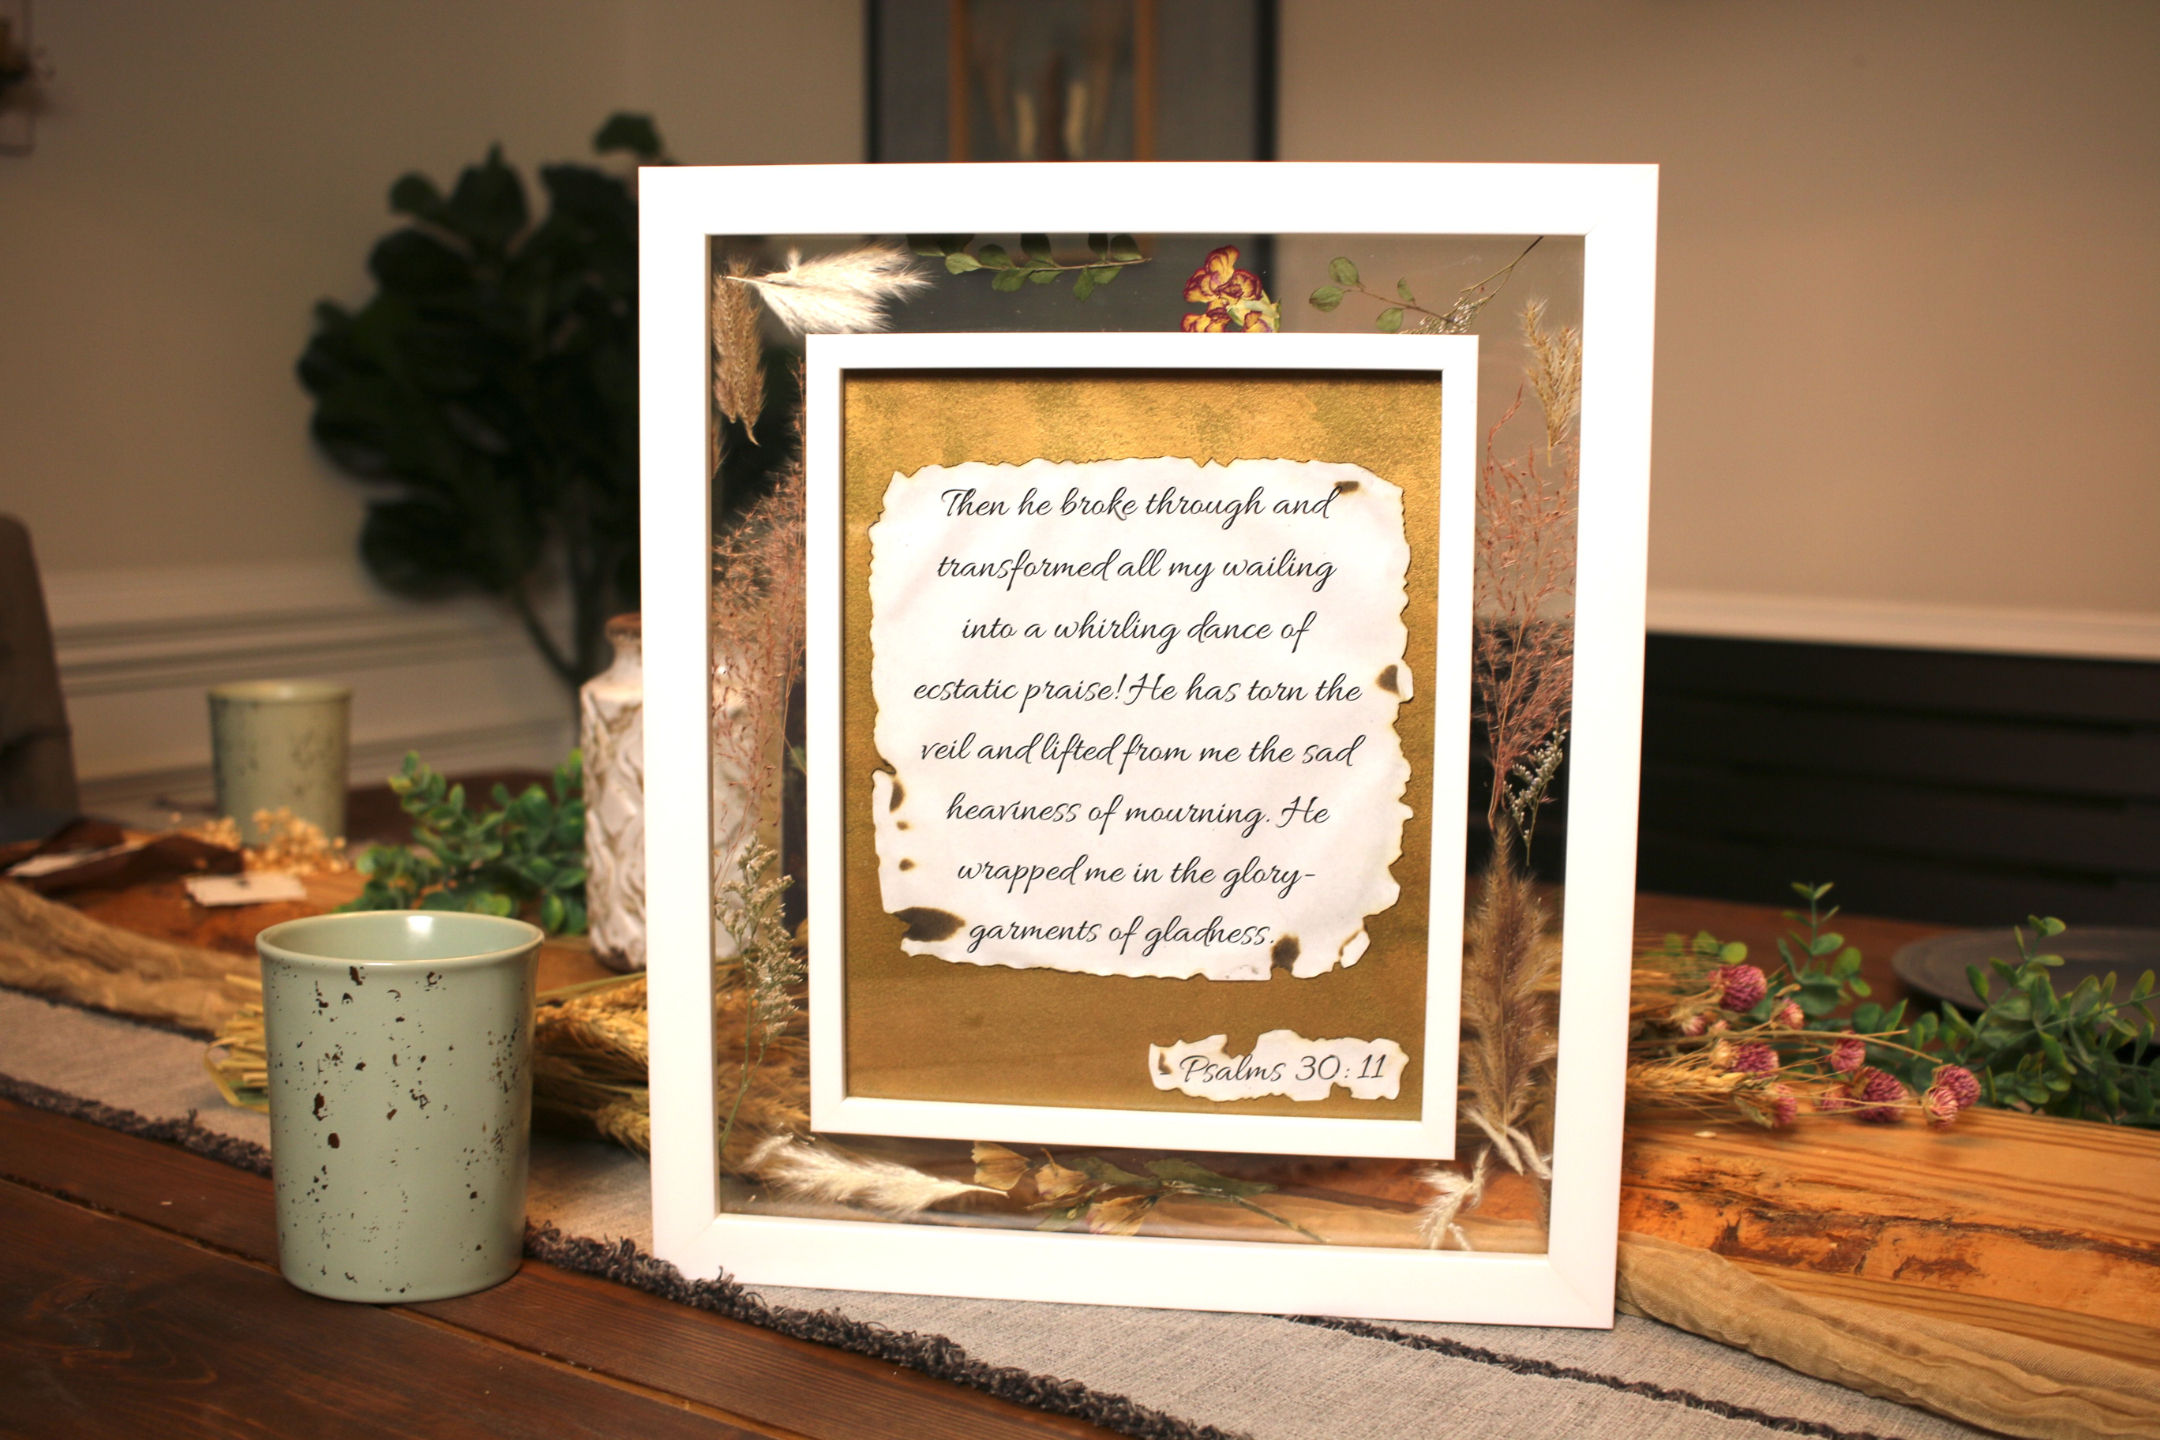 Then he broke through and
transformed all my wailing
into a whirling dance of
ecstatic praise! He has torn the
veil and lifted from me the sad
heaviness of mourning. He
wrapped me in the glory-
garments of gladness.
Psalms 30:11